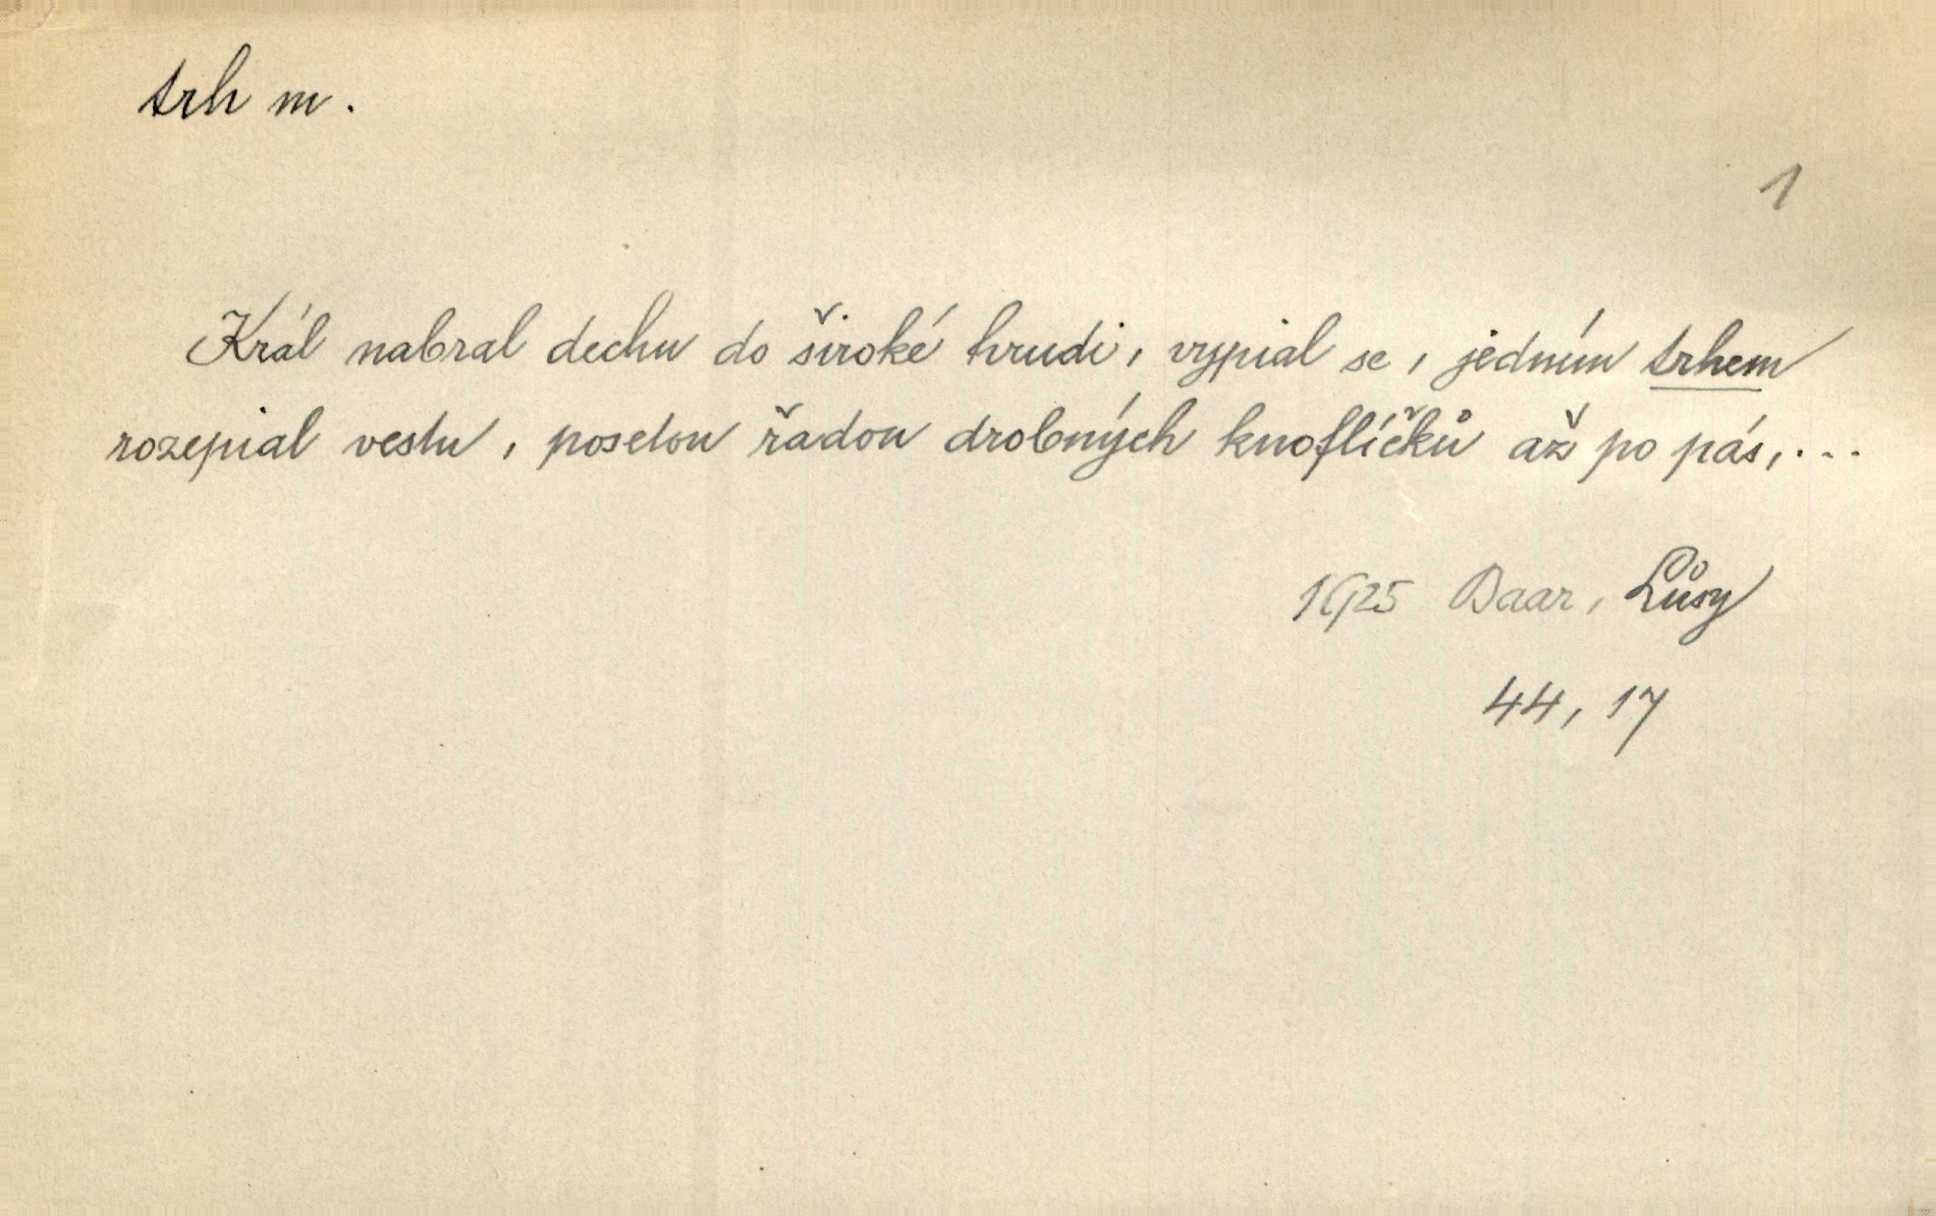 trh m.
1
Král nabral dechu do široké hrudi, vypial se, jedním trhem
rozepial vestu, posetou řadou drobných knoflíčků až po pás,...
1925 Baar, Lůsy
44, 17